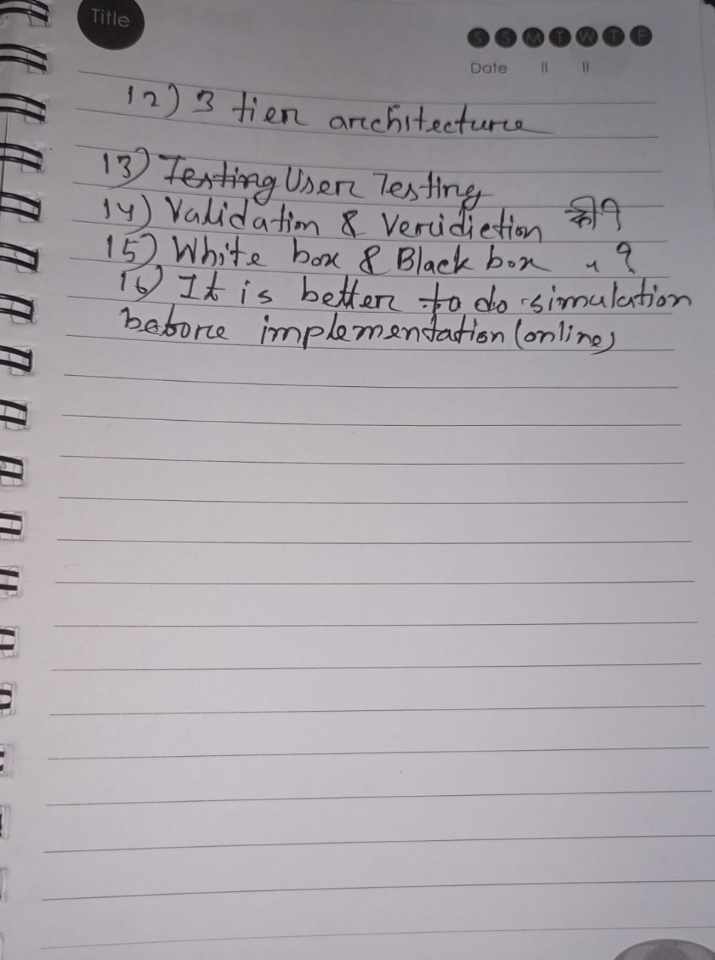 Title
S S M T W T F
Date
12) 3 tier architecture
13) Testing User Testing
14) Validation & Veridiction কী?
15) White box & Black box " ?
16) It is better to do simulation
before implementation (online)